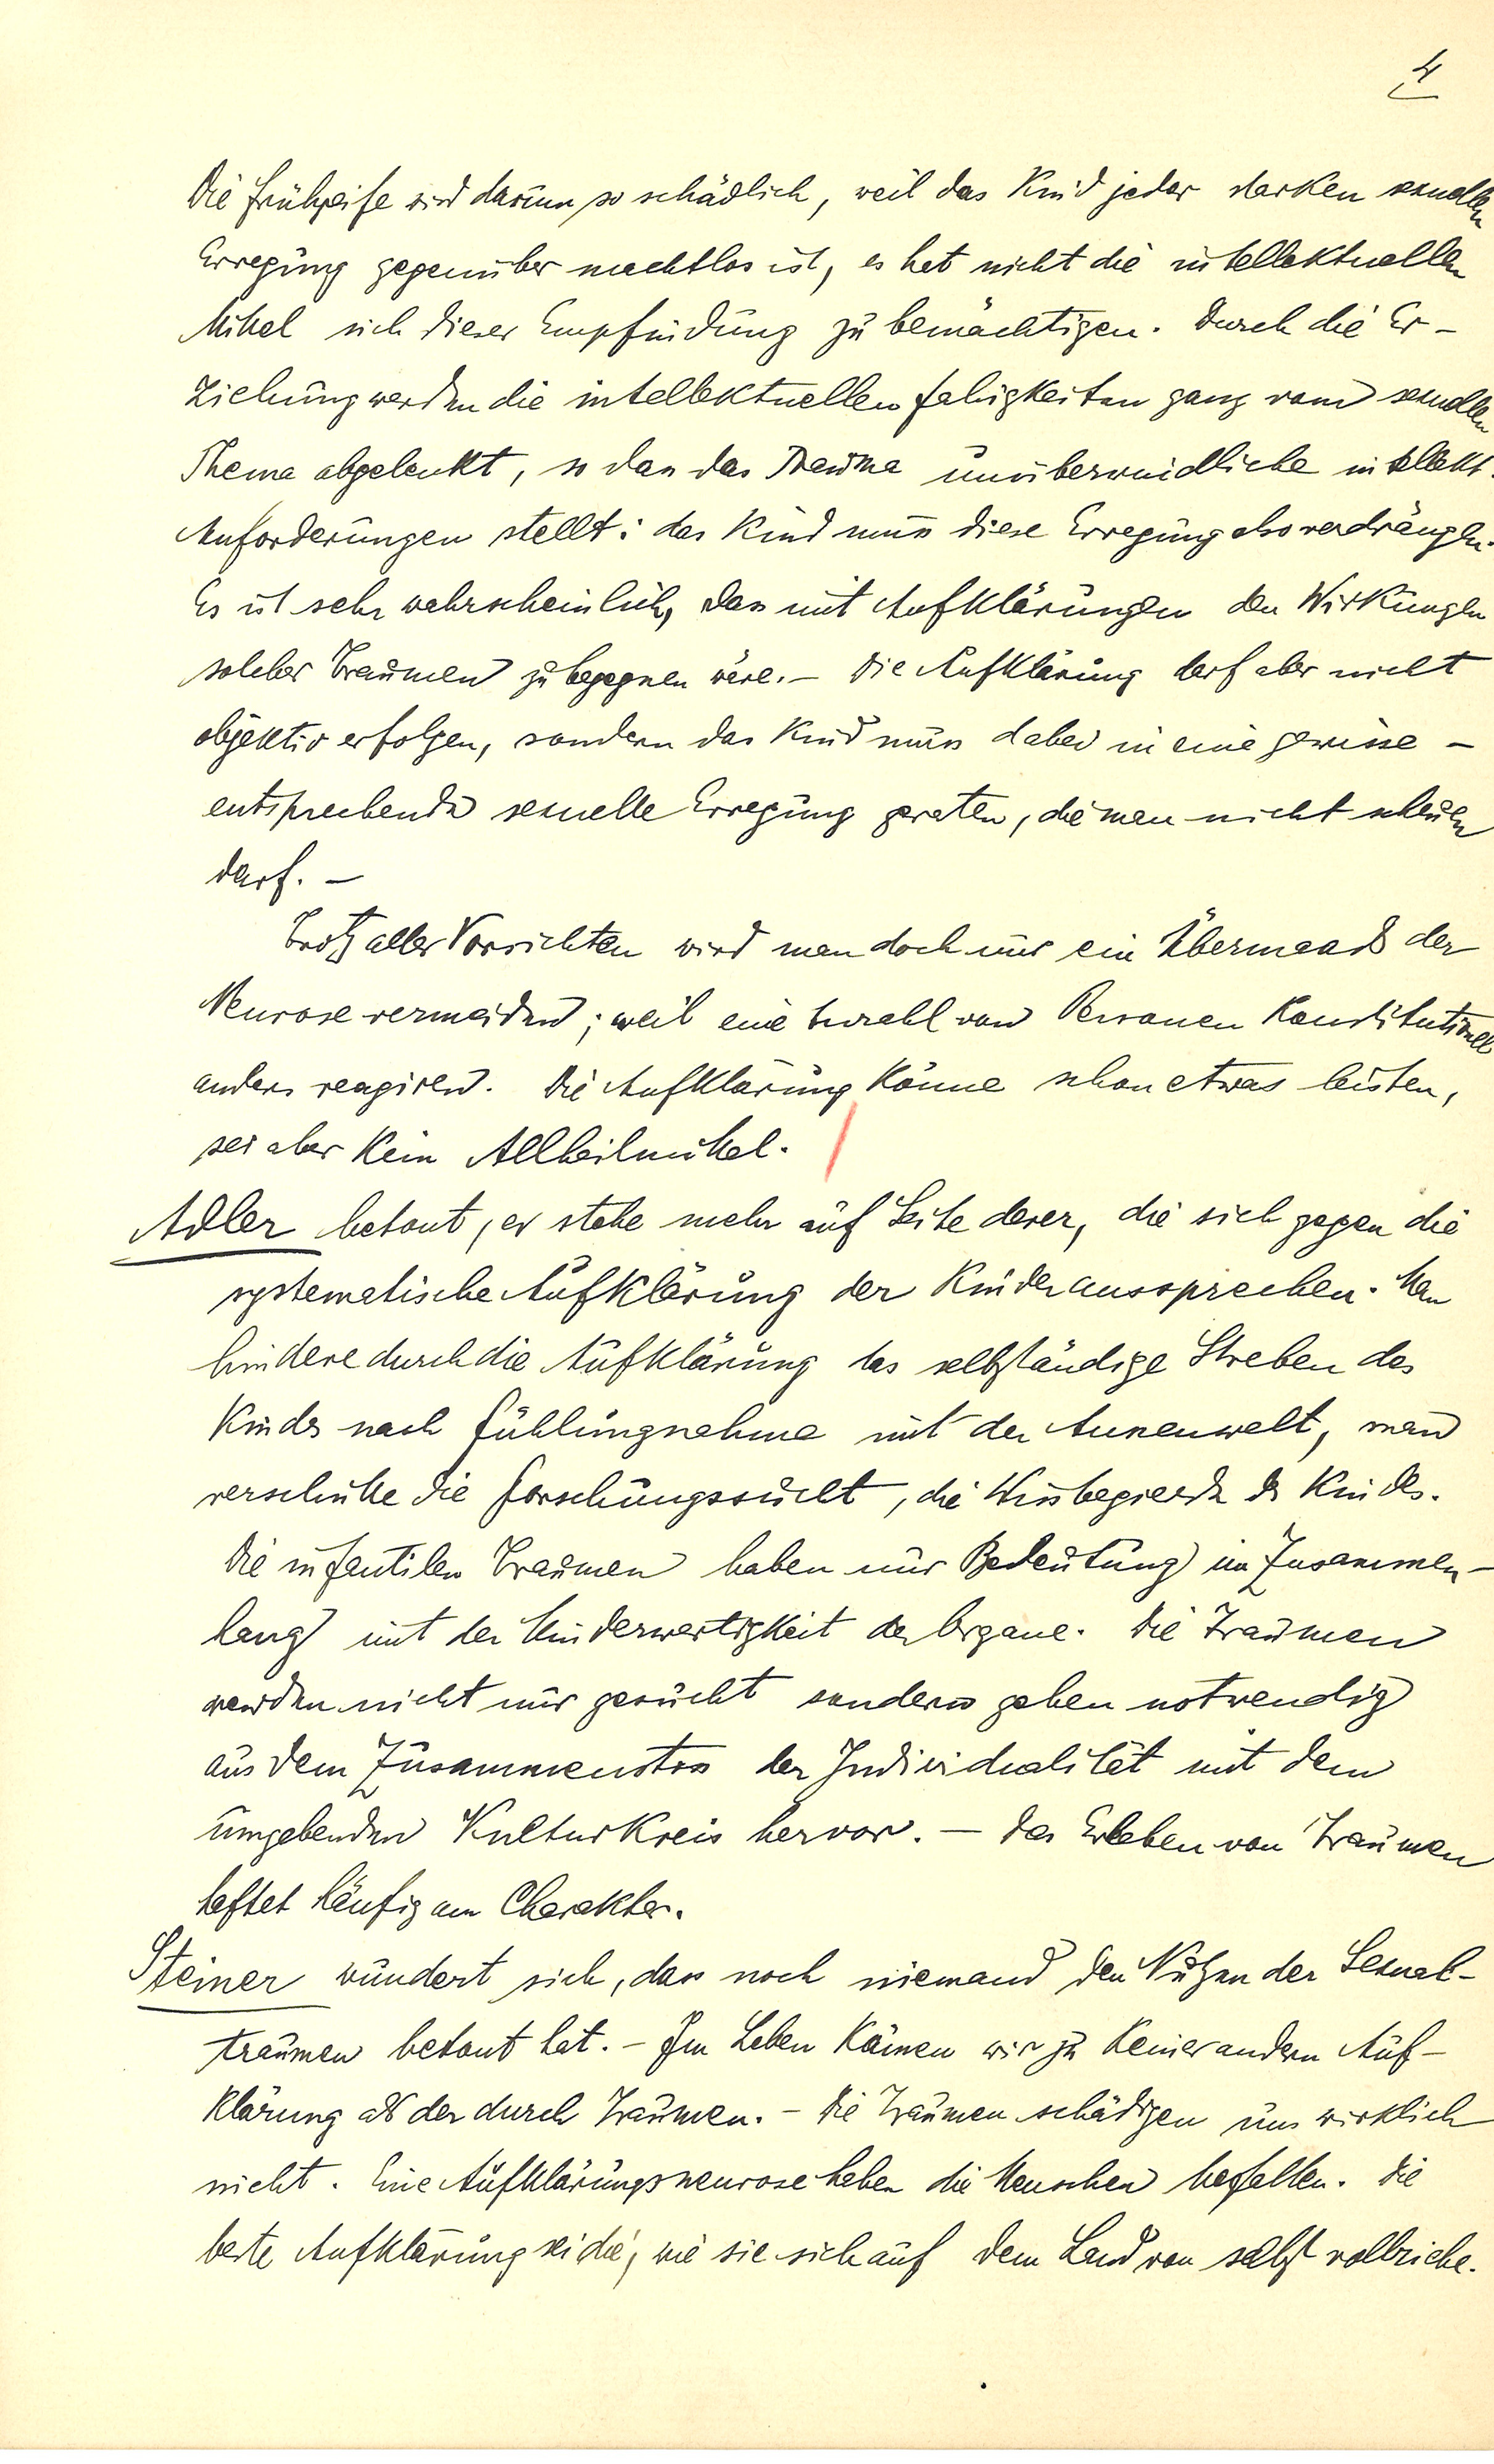 4
Die Frühreife wird darum so schädlich, weil das Kind jeder starken sexuellen
Erregung gegenüber machtlos ist, es hat nicht die intellektuellen
Mittel sich dieser Empfindung zu bemächtigen. Durch die Er-
ziehung werden die intellektuellen Fähigkeiten ganz vom sexuellen
Thema abgelenkt, so dass das Trauma unüberwindliche intellekt.
Anforderungen stellt: das Kind muss diese Erregung also verdrängen.
Es ist sehr wahrscheinlich, dass mit Aufklärungen den Wirkungen
solcher Traumen zu begegnen wäre. – Die Aufklärung darf aber nicht
objektiv erfolgen, sondern das Kind muss dabei in eine gewisse –
entsprechende sexuelle Erregung geraten, die man nicht scheuen
darf. –
Trotz aller Vorsichten wird man doch nur ein Übermaass der
Neurose vermeiden; weil eine Anzahl von Personen Konstitutionell
anders reagiren. Die Aufklärung könne schon etwas leisten,
sei aber kein Allheilmittel.
Adler betont, er stehe mehr auf Seite derer, die sich gegen die
systematische Aufklärung der Kinder aussprechen. Man
hindere durch die Aufklärung das selbständige Streben des
Kindes nach Fühlungnahme mit der Aussenwelt, man
verschütte die Forschungssucht, die Wissbegierde des Kindes.
Die infantilen Traumen haben nur Bedeutung im Zusammen-
hang mit der Minderwertigkeit der Organe. Die Traumen
werden nicht nur gesucht sondern gehen notwendig
aus dem Zusammenstoss der Individualität mit dem
umgebenden Kulturkreis hervor. – Das Erleben von Traumen
haftet häufig am Charakter.
Steiner wundert sich, dass noch niemand den Nutzen der Sexual-
traumen betont hat. – Im Leben kämen wir zu keiner andern Auf-
klärung als der durch Traumen. – Die Traumen schädigen uns wirklich
nicht. Eine Aufklärungsneurose habe die Menschen befallen. Die
beste Aufklärung sei die, wie sie sich auf dem Land von selbst vollziehe.